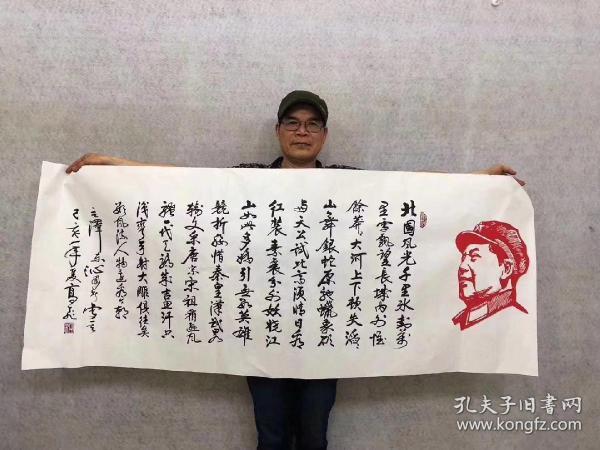 北國风光千里冰封万
里雪飘望長城内外惟
餘莽大河上下顿失滔
山舞銀蛇原驰蠟象欲
与天公试比高须晴日看
红装素裹分外妖娆江
山如此多娇引无数英雄
竞折腰惜秦皇漢武略
输文采唐宗宋祖稍逊风
骚一代天骄成吉思汗只
识弯弓射大雕俱往矣
数风流人物还看今朝
毛澤东沁园春雪
己亥年
孔夫子旧书网
www.kongfz.com